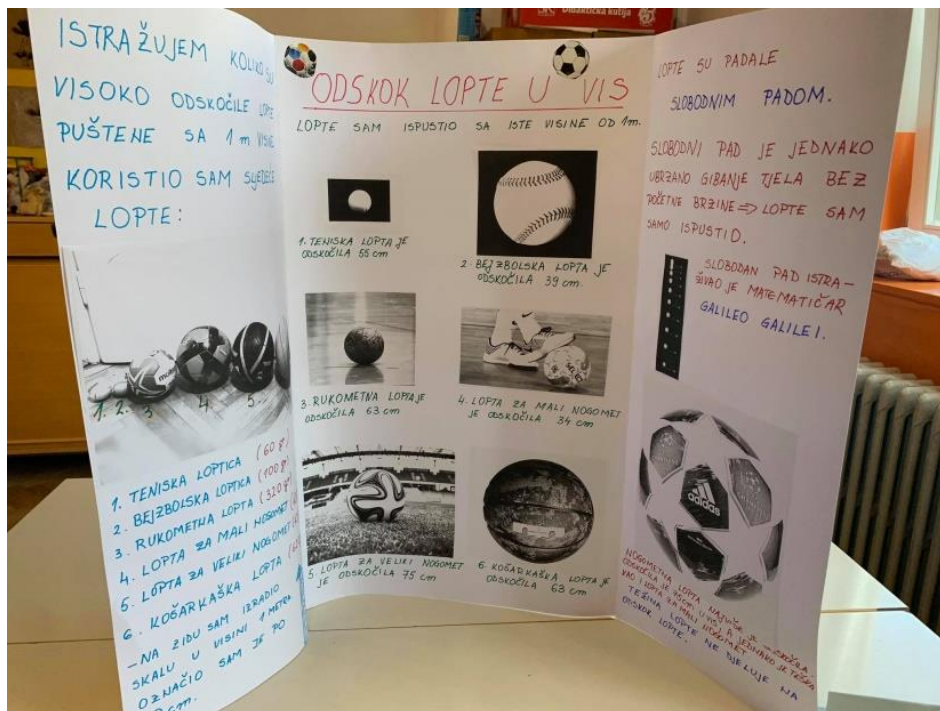 ISTRAŽUJEM KOLIKO SU
VISOKO ODSKOČILE LOPTE
PUŠTENE SA 1 m VISINE
KORISTIO SAM SLJEDEĆE
LOPTE:
1. 2. 3 4. 5...
1. TENISKA LOPTICA (60 g)
2. BEJZBOLSKA LOPTICA (100 g)
3. RUKOMETNA LOPTA (320 g)
4. LOPTA ZA MALI NOGOMET
5. LOPTA ZA VELIKI NOGOMET
6. KOŠARKAŠKA LOPTA
- NA ZIDU SAM IZRADIO
SKALU U VISINI 1 METRA
OZNAČIO SAM JE PO
cm.
ODSKOK LOPTE U VIS
LOPTE SAM ISPUSTIO SA ISTE VISINE OD 1m.
1. TENISKA LOPTA JE
ODSKOČILA 55 cm
2. BEJZBOLSKA LOPTA JE
ODSKOČILA 39 cm.
3. RUKOMETNA LOPTA JE
ODSKOČILA 63 cm
4. LOPTA ZA MALI NOGOMET
JE ODSKOČILA 34 cm
5. LOPTA ZA VELIKI NOGOMET
JE ODSKOČILA 75 cm
6. KOŠARKAŠKA LOPTA JE
ODSKOČILA 63 cm
LOPTE SU PADALE
SLOBODNIM PADOM.
SLOBODNI PAD JE JEDNAKO
UBRZANO GIBANJE TJELA BEZ
POČETNE BRZINE => LOPTE SAM
SAMO ISPUSTIO.
SLOBODAN PAD ISTRA-
ŽIVAO JE MATEMATIČAR
GALILEO GALILEI.
adidas
NOGOMETNA LOPTA NAJVIŠE JE
ODSKOČILA JE 75cm U VIS, A JEDNAKO JE TEŠKA
KAO I LOPTA ZA MALI NOGOMET
TEŽINA LOPTE NE DJELUJE NA
ODSKOK LOPTE.
Didaktička kutija